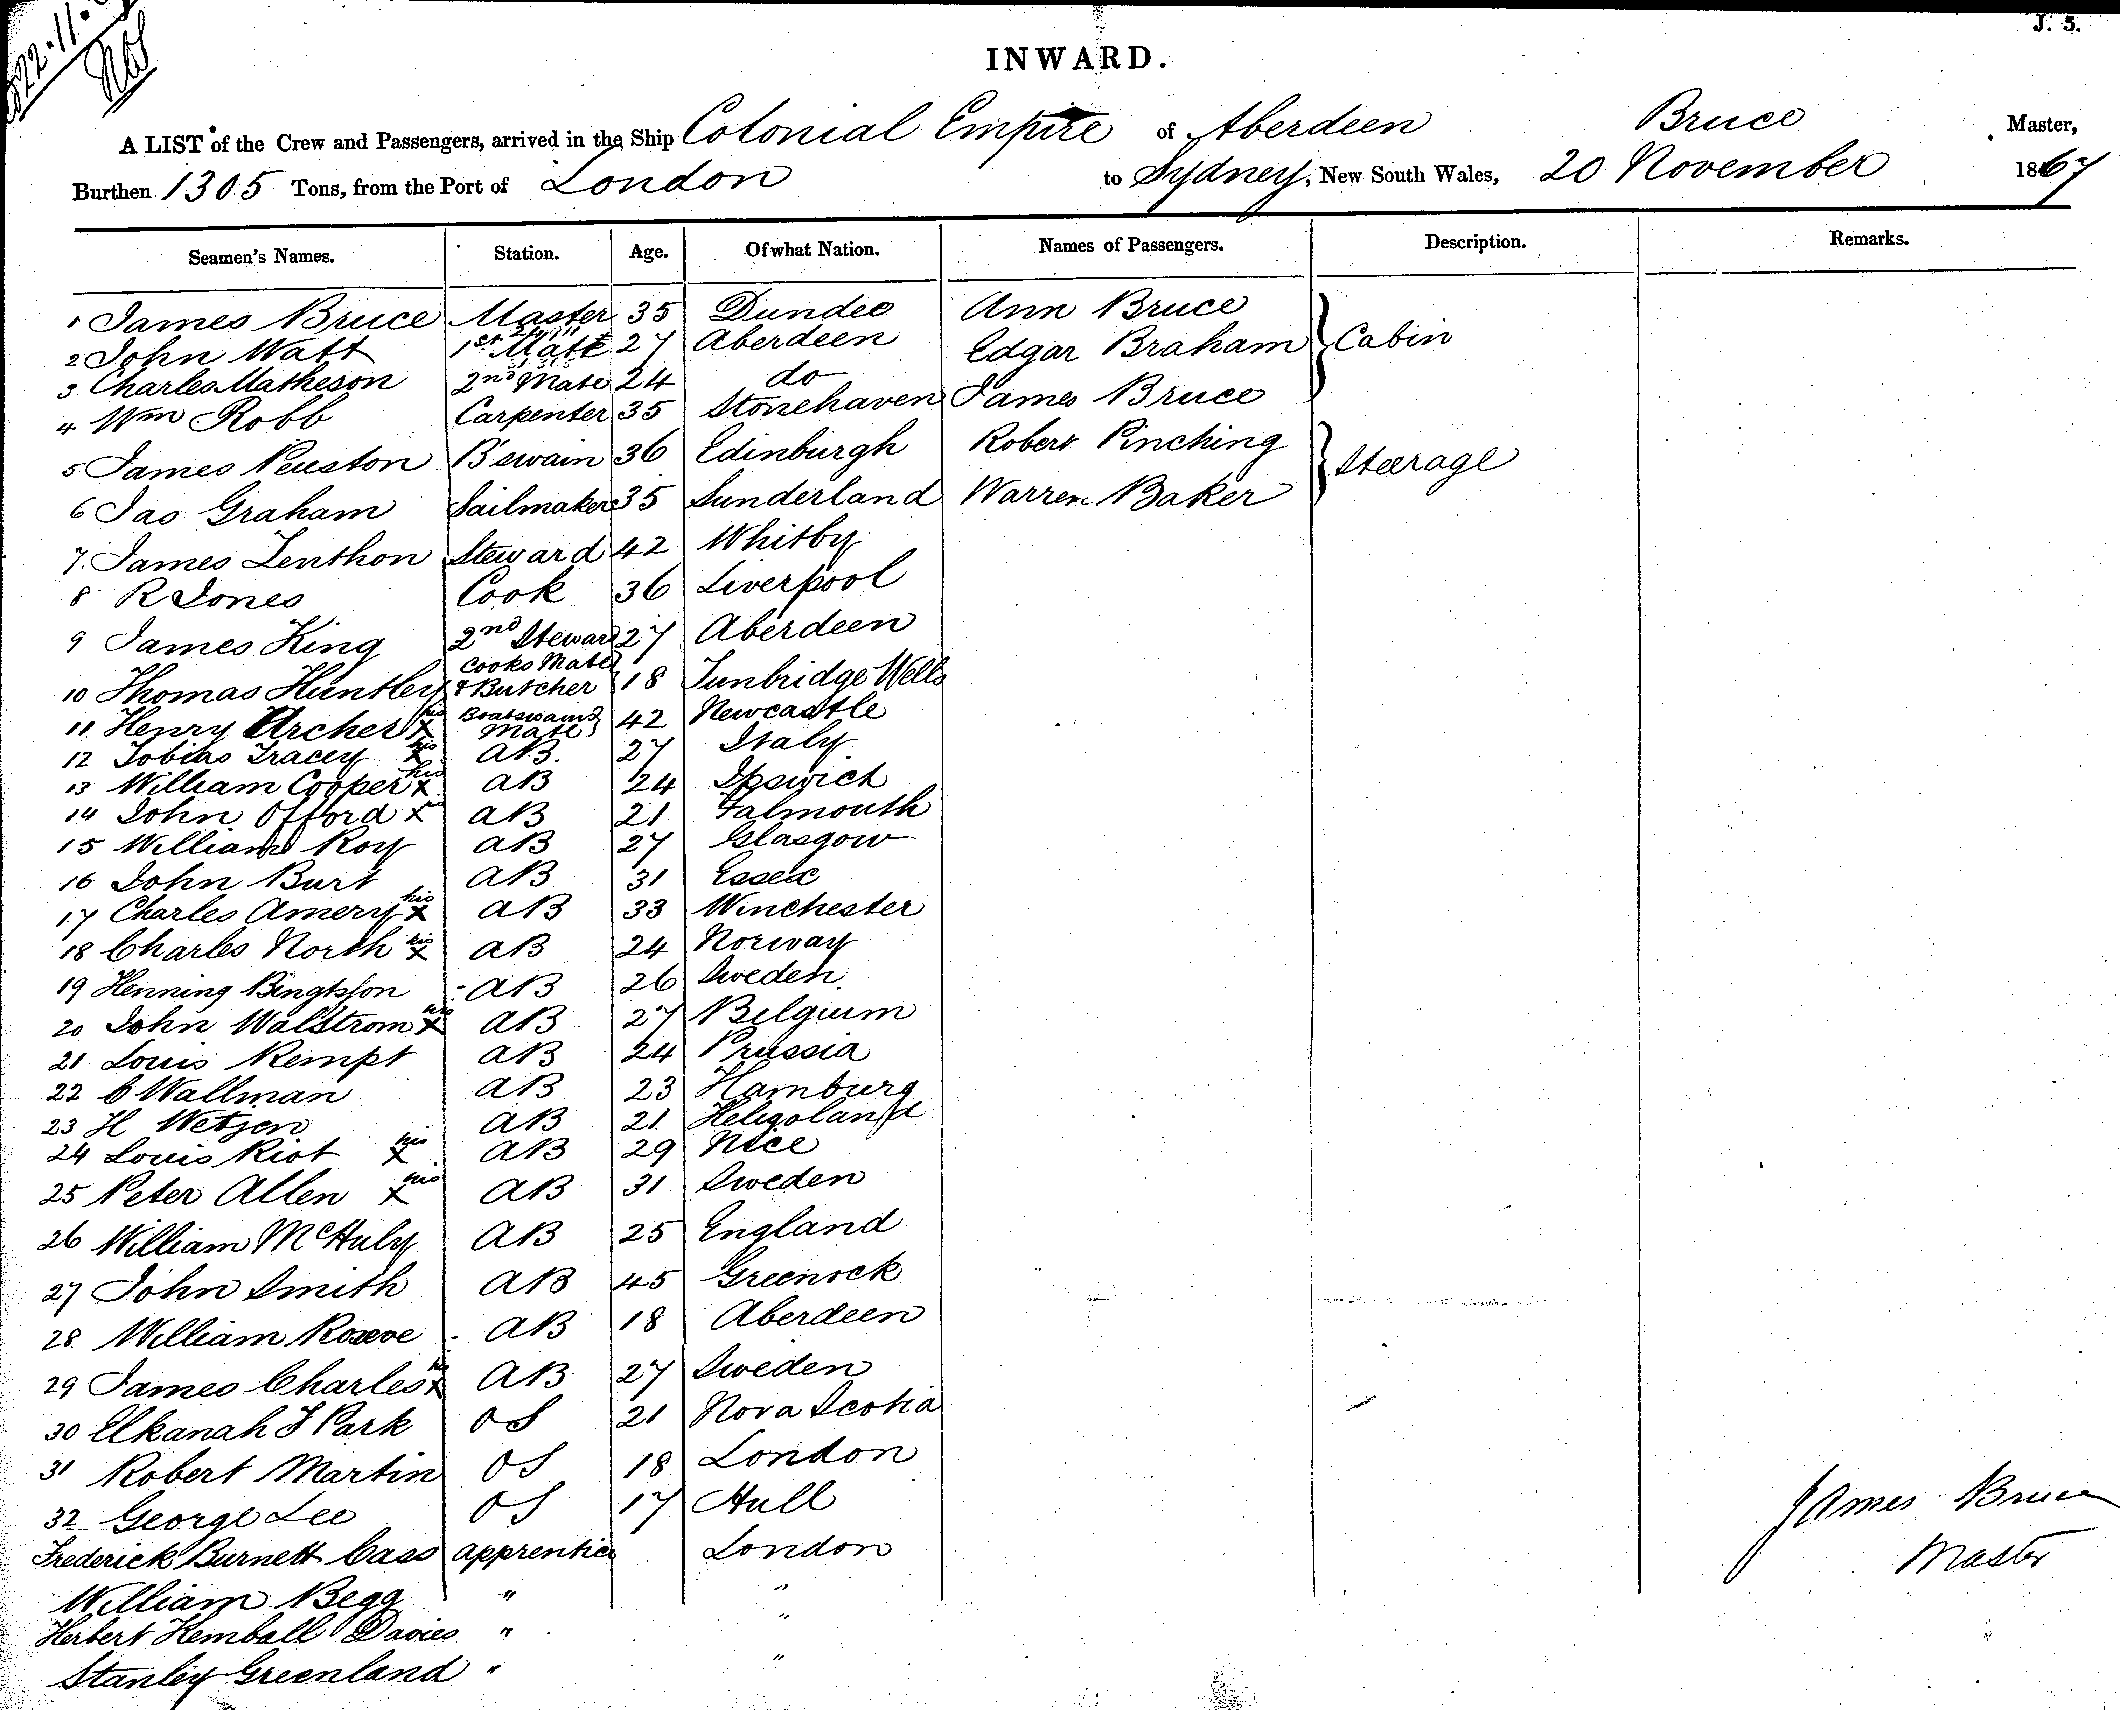 J. 5.
INWARD.
A LIST of the Crew and Passengers, arrived in the Ship Colonial Empire of Aberdeen Bruce Master,
Burthen 1305 Tons, from the Port of London to Sydney, New South Wales, 20 November 1867
Seamen's Names. Station. Age. Of what Nation. Names of Passengers. Description. Remarks.
1 James Bruce Master 35 Dundee Ann Bruce
2 John Watt 1st Mate 27 Aberdeen Edgar Braham Cabin
3 Charles Matheson 2nd Mate 24 do
4 Wm Robb Carpenter 35 Stonehaven James Bruce
5 James Peuston B'swain 36 Edinburgh Robert Pinching Steerage
6 Jas Graham Sailmaker 35 Sunderland Warren Baker
7 James Lenthon Steward 42 Whitby
8 R Jones Cook 36 Liverpool
9 James King 2nd Steward 27 Aberdeen
10 Thomas Huntley Cooks Mate & Butcher 18 Tunbridge Wells
11 Henry Archer his x Boatswains Mate 42 Newcastle
12 Tobias Tracey his x AB. 27 Italy
13 William Cooper his x AB 24 Ipswich
14 John Offord x AB 21 Falmouth
15 William Roy AB 27 Glasgow
16 John Burt AB 31 Essex
17 Charles Amery his x AB 33 Winchester
18 Charles North his x AB 24 Norway
19 Henning Bengtsson AB 26 Sweden
20 John Walstrom his x AB 27 Belgium
21 Louis Kempt AB 24 Prussia
22 C Wallman AB 23 Hamburg
23 H Wetjen AB 21 Heligoland
24 Louis Riot his x AB 29 Nice
25 Peter Allen his x AB 31 Sweden
26 William McHuly AB 25 England
27 John Smith AB 45 Greenock
28 William AB 18 Aberdeen
29 James Charles his x AB 27 Sweden
30 Elkanah J Park OS 21 Nova Scotia
31 Robert Martin OS 18 London
32 George Lee OS 17 Hull
James Bruce
Frederick Burnett Cass apprentice London
Master
William Begg " "
Herbert Kemball Davies " "
Stanley Greenland " "